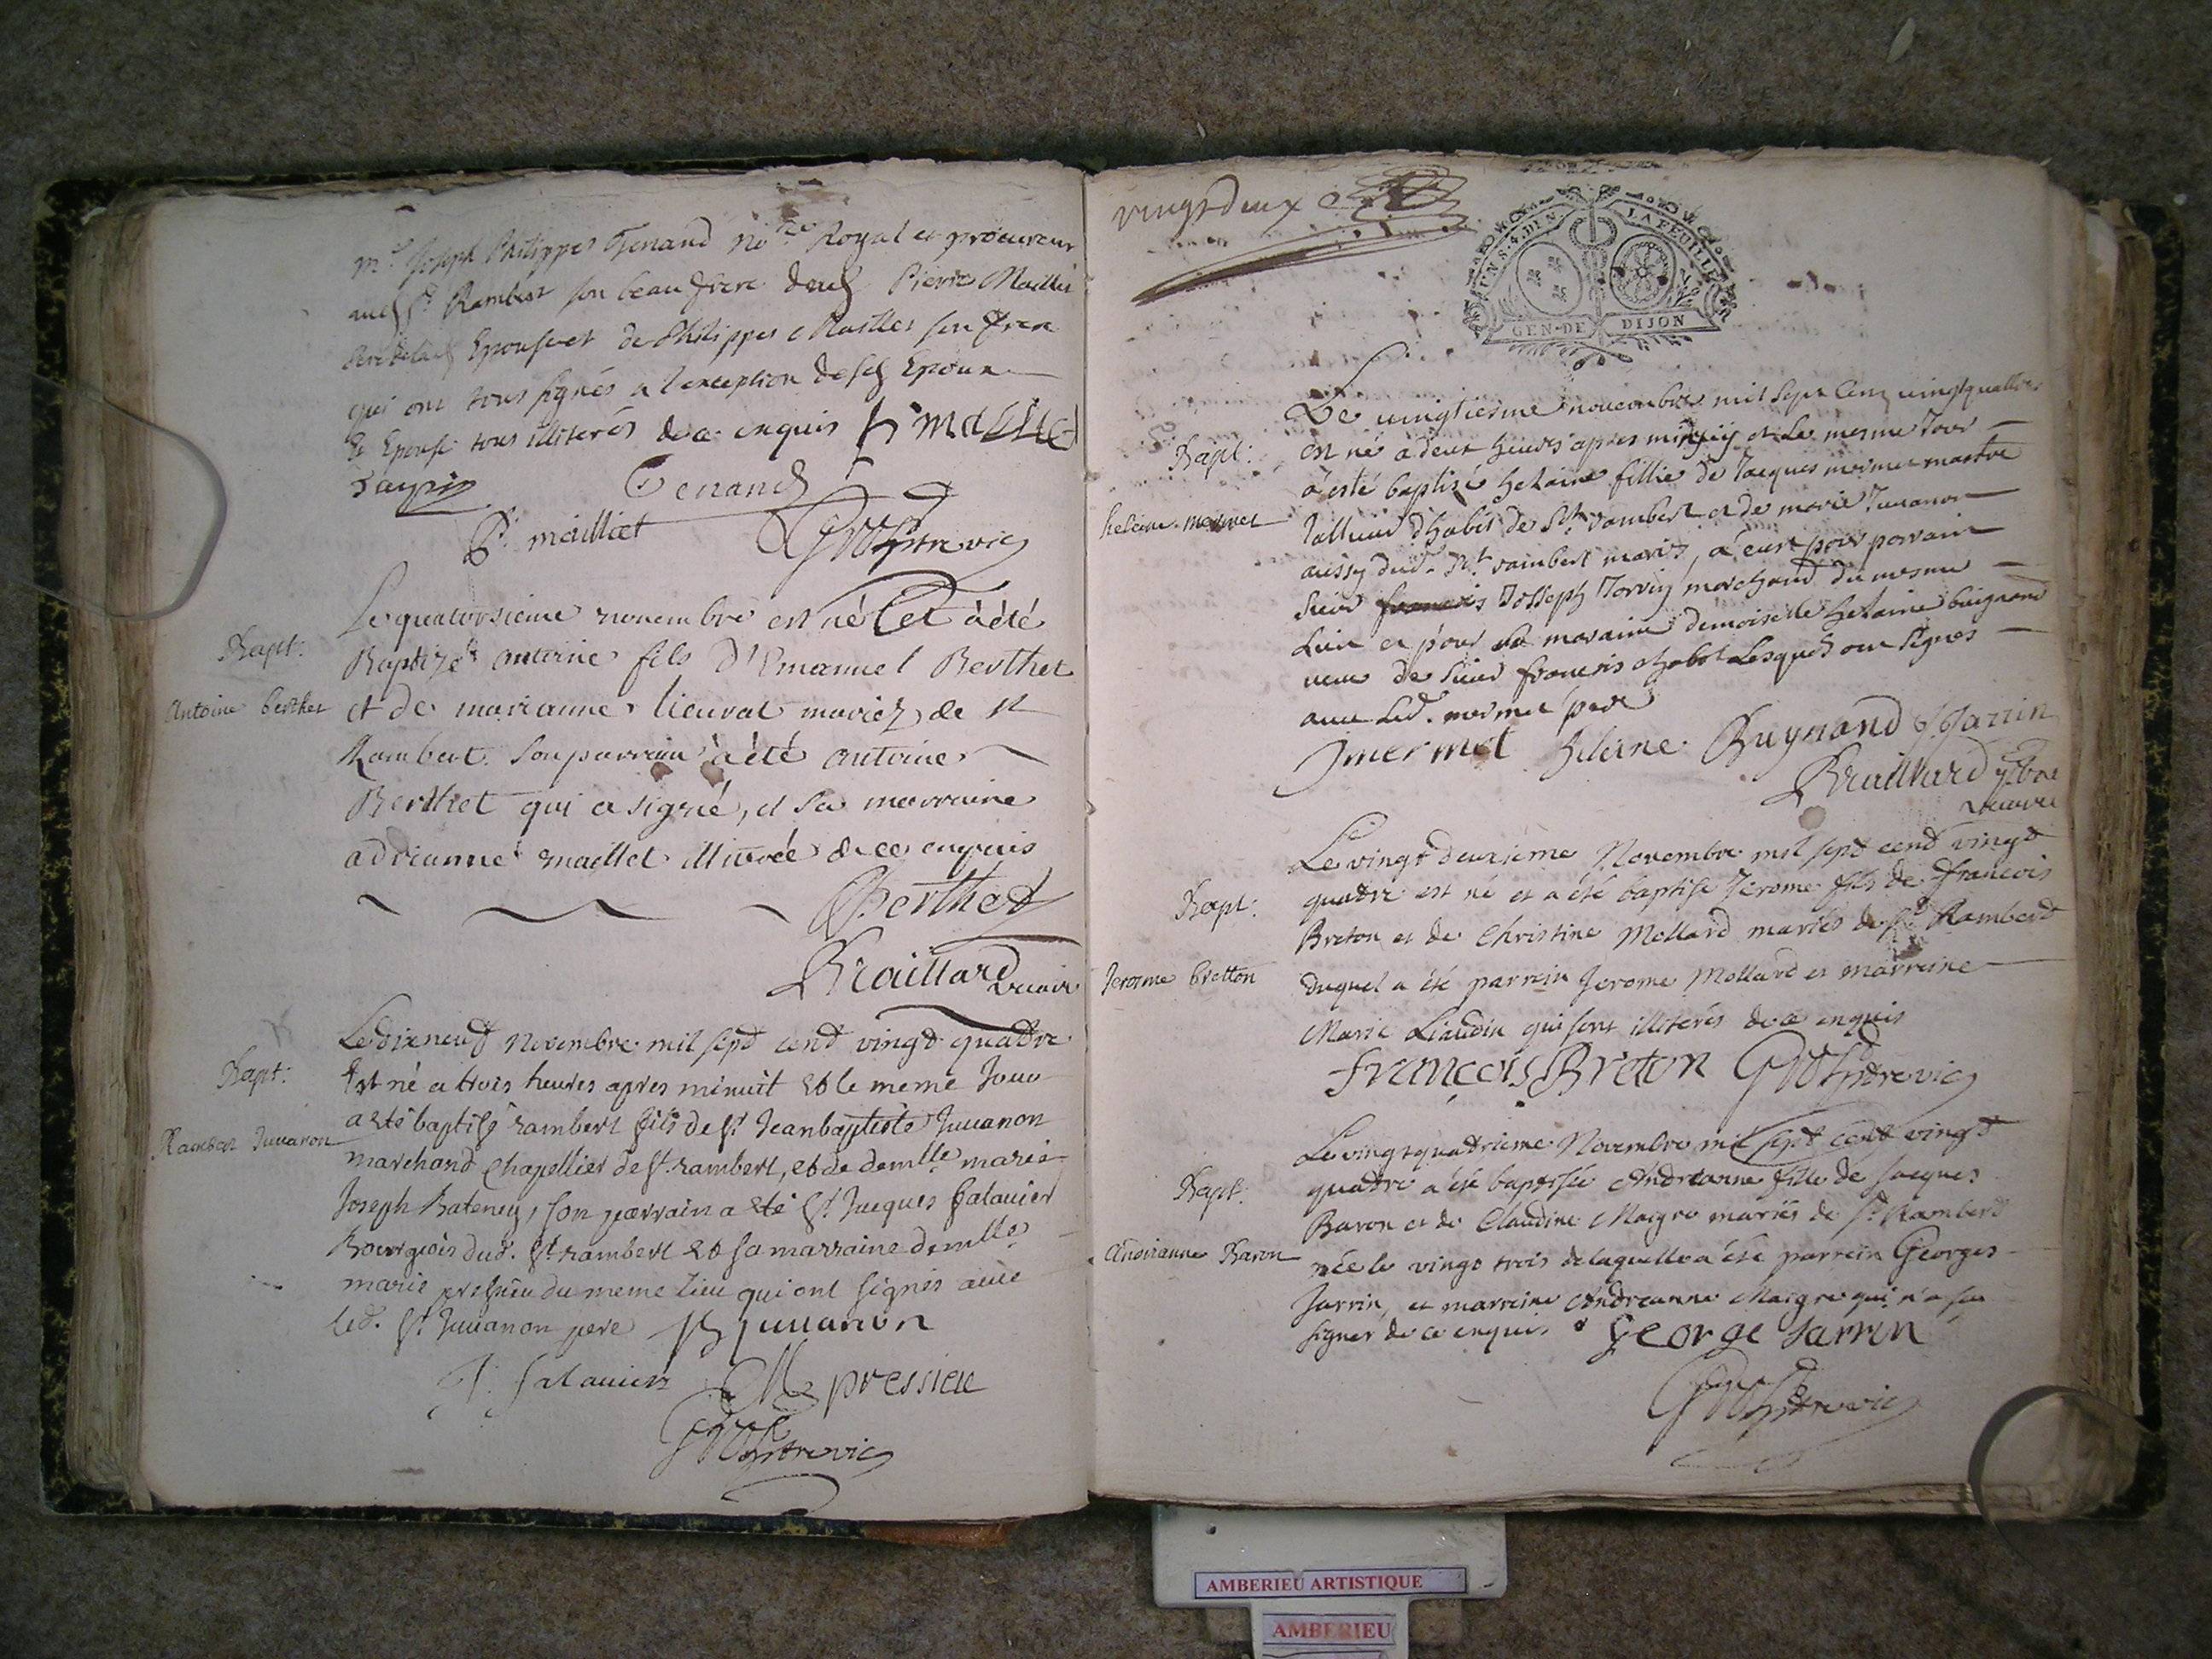 Mr. Joseph Philippes Tenand Nore Royal et procureur
aud St Rambert son beau frere dud Pierre Maillet
Epouse et de Philippes Maillet son frere
qui ont tous signés a l'exception desd Epoux
et Epouse tous illiterés de ce enquis
Tenand
P. maillet
Bapt:
Antoine berthet
Le quatorsieme novembre est né et à été
Baptizé antoine fils d'Emanuel Berthet
et de marianne lieuval mariez de st
Rambert. Son parrain à été antoine
Berthet qui a signé, et sa marraine
adrianne maillet illiterée de ce enquis
Berthet
Braillard vicaire
Bapt:
Rambert Juuanon
Le dixneuf Novembre mil sept cent vingt quattre
Est né a trois heures apres minuit et le meme Jour
a eté baptisé rambert fils de sr Jean baptiste Juuanon
marchand Chapellier de st rambert, et de demlle marie
Joseph Bateney, son parrain a eté sr Jacques salauier
Bourgeois dud. st rambert et sa marraine demlle
marie pressieu du meme lieu qui ont signés avec
led. sr Juuanon pere Juuanon
J. salauier M pressieu
vingt deux
UN S. 4. DEN. LA FEUILLE
GEN. DE DIJON
Bapt:
helaine mermet
Le uingtiesme nouembre mil sept cent uingt quattre
est né a deux heures apres minuit et le mesme Jour
a esté baptisé helaine fillie de Jacques mermet maitre
tallieur d'habit de St rambert et de marie Juuanon
aussy dud. St rambert mariés, a eu pour parrain
Sieur Josseph Jarrin marchand du mesme
Lieu et pour maraine demoiselle helaine buignand
ueuue de Sieur francois chabot Lesquels ont signés
auec Led. mermet pere
J mermet helaine Buynand J Jarrin
Braillard
vicaire
Bapt:
Jerosme bretton
Le vingt deuxieme Novembre mil sept cent vingt
quatre est né et a été baptisé Jerome fils de Francois
Breton et de Christine Mollard mariés de St Rambert
duquel a été parrein Jerome Mollard et marreine
Marie Liaudin qui sont illiterés de ce enquis
françois Breton
Bapt:
Andrianne Baron
Le vingt quatrieme Novembre mil sept cent vingt
quatre a été baptisée Andreanne fille de Jacques
Baron et de Claudine Maigre mariés de St Rambert
née le vingt trois de laquelle a été parrein Georges
Jarrin, et marreine Andreanne Maigre qui n'a su
signer de ce enquis George Jarrin
AMBERIEU ARTISTIQUE
AMBERIEU